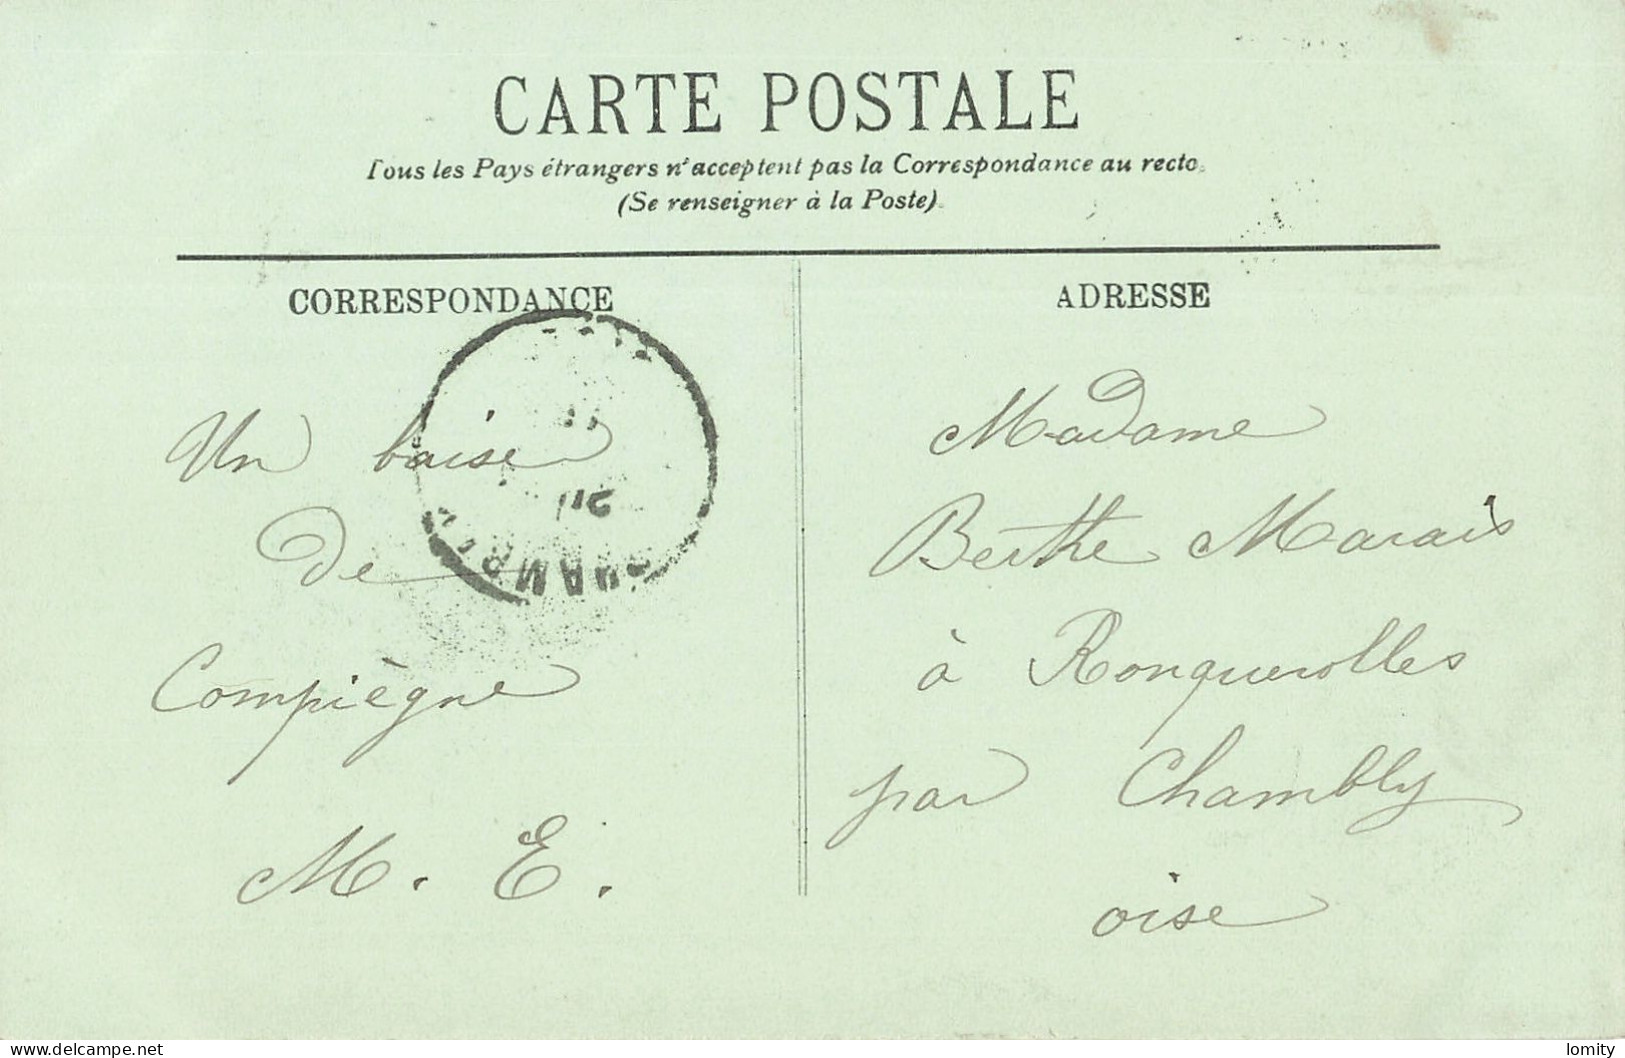 CARTE POSTALE
Tous les Pays étrangers n'acceptent pas la Correspondance au recto.
(Se renseigner à la Poste).
CORRESPONDANCE
Un baise
de
Compiègne
M. E.
ADRESSE
Madame
Berthe Marais
à Ronquerolles
par Chambly
oise
CHAMBLY
delcampe.net
lomity